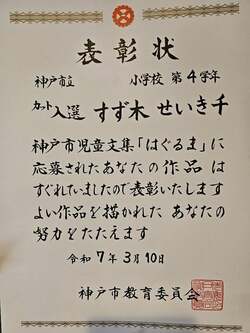 表彰状
神戸市立 小学校 第4学年
カット 入選 すず木 せいき千
神戸市児童文集「はぐるま」に
応募されたあなたの作品は
すぐれていましたので表彰いたします
よい作品を描かれた あなたの
努力をたたえます
令和7年3月10日
神戸市教育委員会